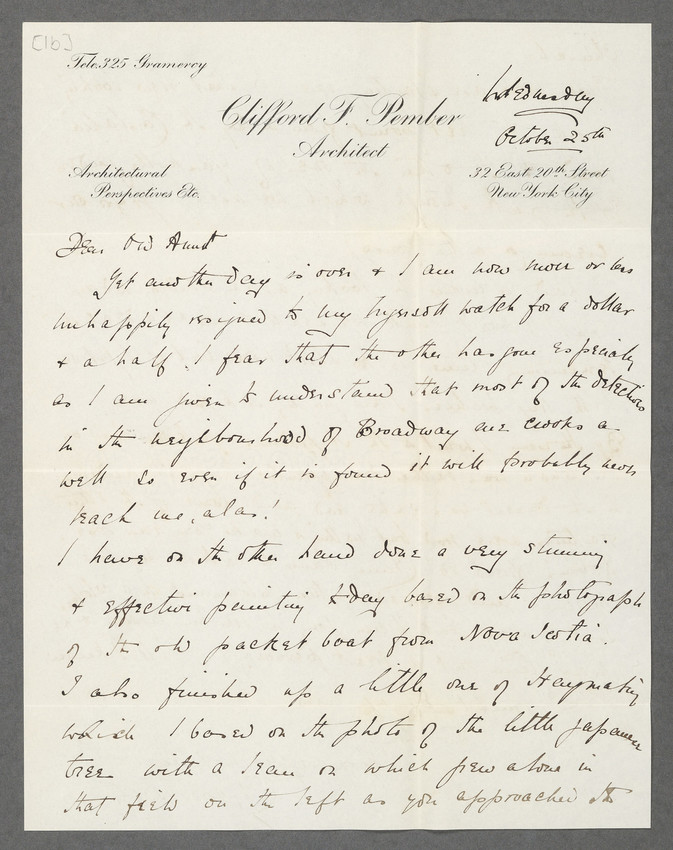 [1b]
Tele. 325 Gramercy
Clifford F. Pember
Architect
Wednesday
October 25th
Architectural
Perspectives Etc.
32 East 20th Street
New York City
Dear Old Aunt
Yet another day is over & I am now more or less
unhappily resigned to my Ingersoll watch for a dollar
& a half. I fear that the other has gone especially
as I am given to understand that most of the detectives
in the neighbourhood of Broadway are crooks as
well so even if it is found it will probably never
reach me, alas!
I have on the other hand done a very stunning
& effective painting today based on the photograph
of the old packet boat from Nova Scotia.
I also finished up a little one of Haymaking
which I based on the photo of the little Japanese
tree with a lean on which grew alone in
that field on the left as you approached the